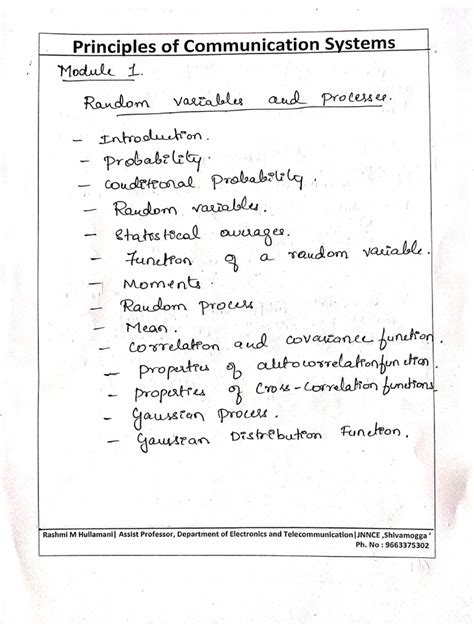 Principles of Communication Systems
Module 1.
Random variables and Processes.
- Introduction.
- Probability.
- Conditional Probability.
- Random variables.
- Statistical averages.
- Function of a random variable.
- Moments.
- Random process
- Mean.
- Correlation and covariance function.
- properties of autocorrelation function.
- properties of Cross-Correlation functions
- Gaussian Process.
- Gaussian Distribution Function.
Rashmi M Hullamani| Assist Professor, Department of Electronics and Telecommunication|JNNCE ,Shivamogga
Ph. No : 9663375302